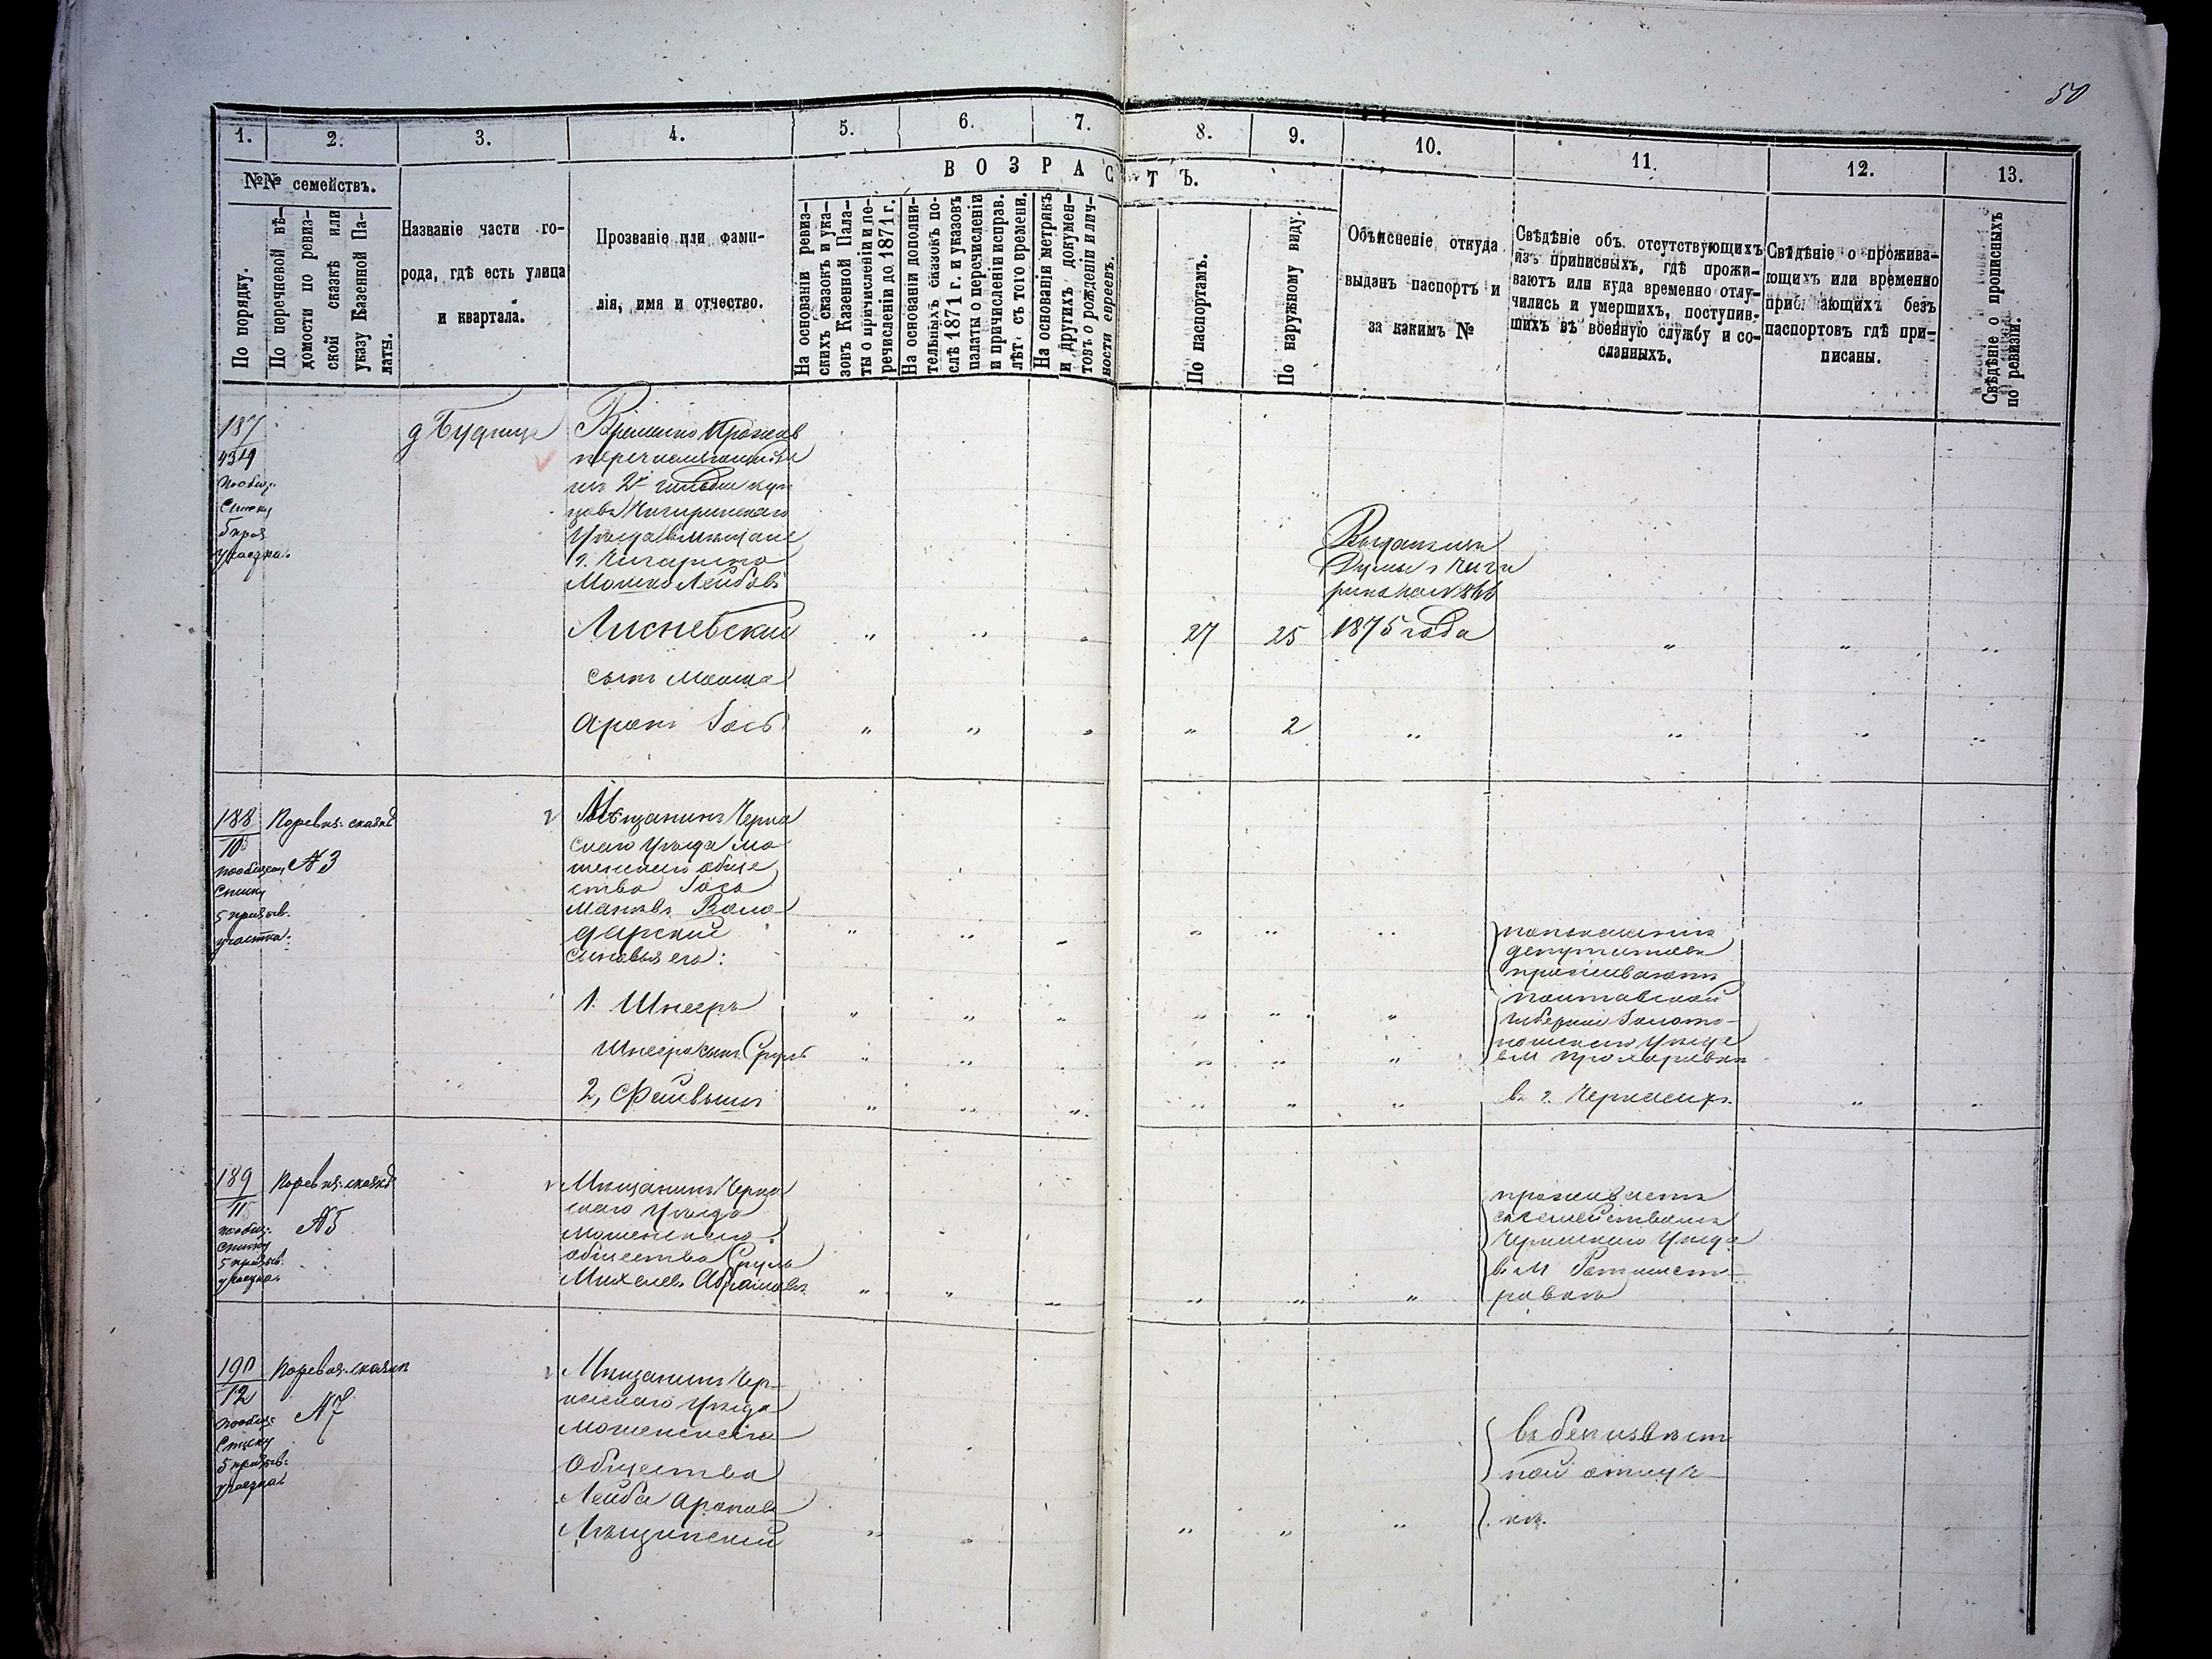 50
1. 2. 3. 4. 5. 6. 7. 8. 9. 10. 11. 12. 13.
№№ семействъ.
ВОЗРАСТЪ.
По порядку.
По перечневой вѣ-
домости по ревиз-
ской сказкѣ или
указу Казенной Па-
латы.
Названіе части го-
рода, гдѣ есть улица
и квартала.
Прозваніе или фами-
лія, имя и отчество.
На основаніи ревиз-
скихъ сказокъ и ука-
зовъ Казенной Пала-
ты о причисленіи и пе-
речисленіи до 1871 г.
На основаніи дополни-
тельныхъ сказокъ по-
слѣ 1871 г. и указовъ
палаты о перечисленіи
и причисленіи исправ.
лѣт. съ того времени.
На основаніи метрикъ
и другихъ докумен-
товъ о рожденіи и лич-
ности евреевъ.
По паспортамъ.
По наружному виду.
Объясненіе откуда
выданъ паспортъ и
за какимъ №
Свѣдѣніе объ отсутствующихъ
изъ приписныхъ, гдѣ прожи-
ваютъ или куда временно отлу-
чились и умершихъ, поступив-
шихъ въ военную службу и со-
сланныхъ.
Свѣдѣніе о прожива-
ющихъ или временно
ающихъ безъ
паспортовъ гдѣ при-
писаны.
Свѣдѣніе о прописныхъ
по ревизіи.
187
4319
по общ.
списку
5 приз
участка.
Временно Прожив
перечисляющійся
изъ 2й гильдіи куп
цовъ Чигиринскаго
Уѣзда въ мѣщане
г. Чигирина
Мошко Лейбовъ
Лисневскій " " " 27 25
Выданъ изъ
Думы г. Чиги
рина
1875 года " " "
сынъ Мошка
Аронъ Іось " " " " 2 " " " "
188
10
по общему
списку
5 призыв.
участка.
По ревиз. сказкѣ
№ 3
Мѣщанинъ Черка
скаго Уѣзда Мо
шенскаго обще
ства Іось
дарскій " " " " " "
сыновья его:
1. Шнееръ " " " " " "
Шнеера сынъ Сруль " " " " " "
по показанію
депутатовъ
проживаютъ
Полтавской
губерніи Золото-
ношскаго Уѣзда
въ м Прохоровкѣ
2, Файвышъ " " " " " " въ г. Черкасахъ " "
189
11
по общ.
списку
5 призыв.
участка
По ревиз. сказкѣ
№ 5
Мѣщанинъ Черка
скаго Уѣзда
Мошенскаго
общества Сруль
Михелевъ Абрамовъ " " " " " "
проживаетъ
съ семействомъ
Черкаскаго Уѣзда
въ М
190
12
по общ:
списку
5 призыв:
участка
По ревиз. сказкѣ
№ 7
Мѣщанинъ Чер-
каскаго Уѣзда
Мошенскаго
Общества
Лейба Ароновъ
" " " " "
въ безизвѣст
ной отлуч
кѣ.